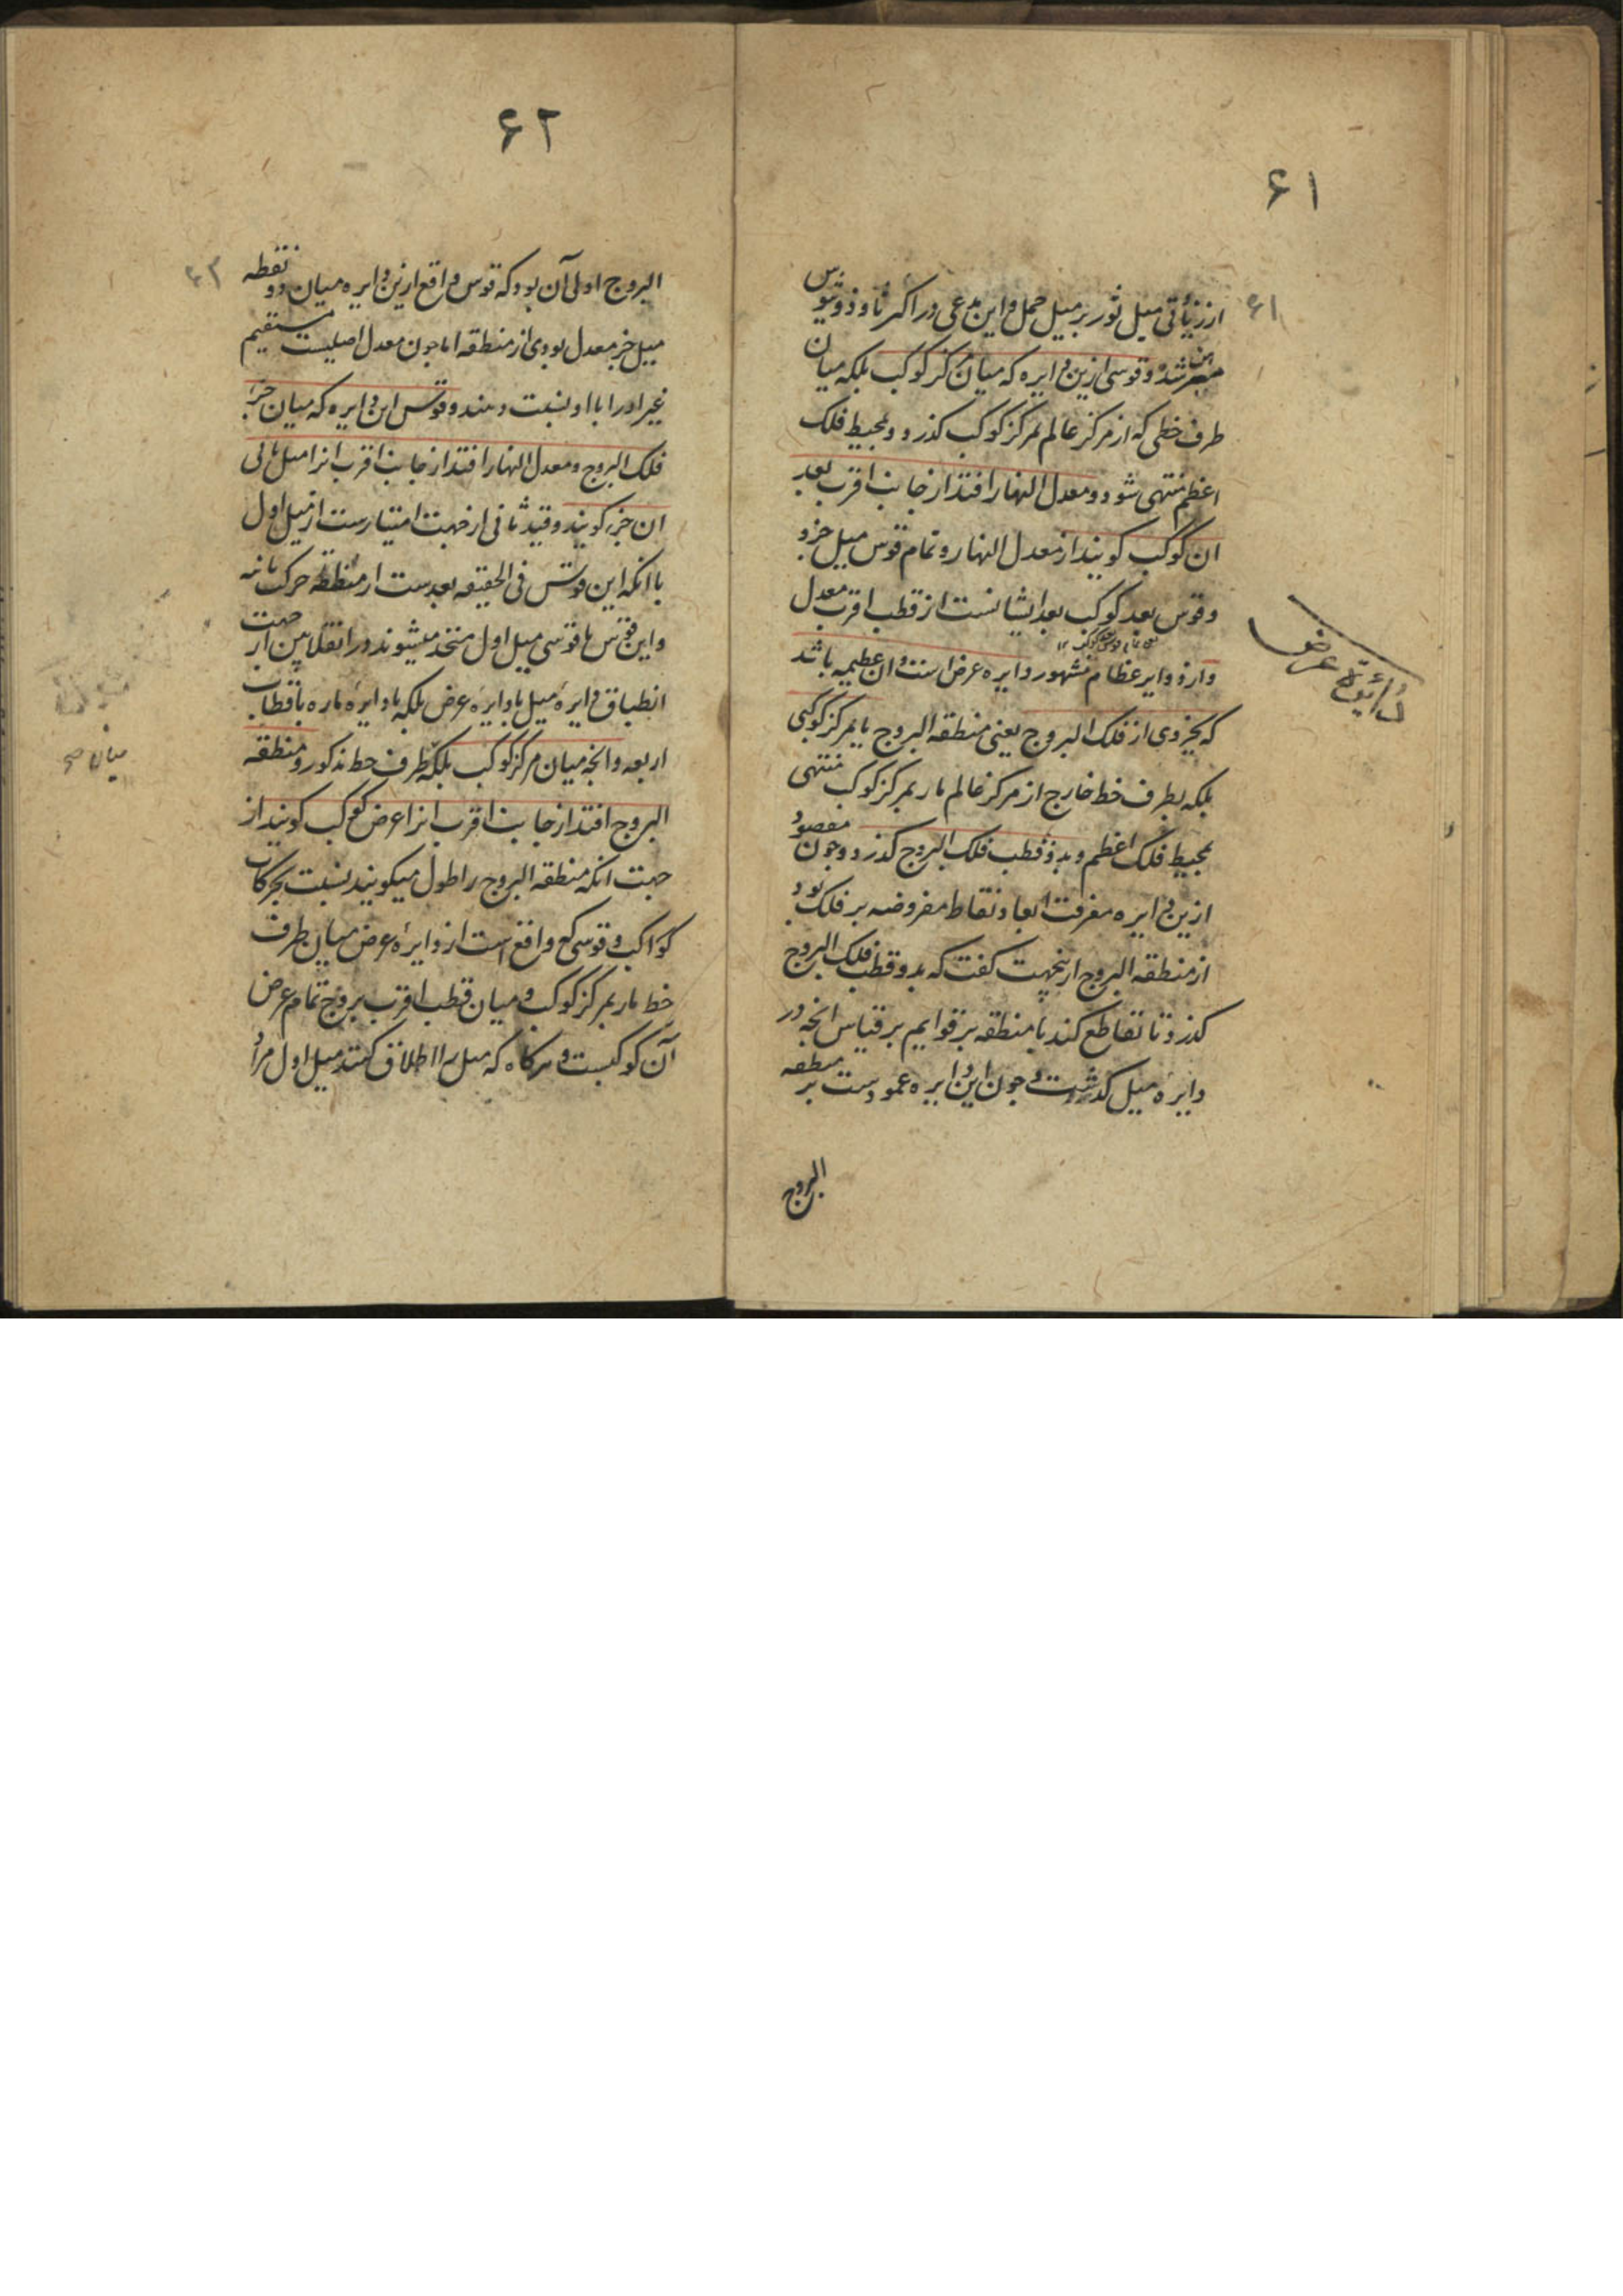 ۶۱
۶۱
از زیادتی میل ثور بر میل حمل و این مدعی در اکر ثاوذوسیوس
مبرهن شده و قوسی ازین دایره که میان مرکز کوکب بلکه میان
طرف خطی که از مرکز عالم بمرکز کوکب کذرد و بمحیط فلک
اعظم منتهی شود و معدل النهار افتد از جانب اقرب بعد
ان کوکب کویند از معدل النهار و تمام قوس میل جزو
و قوس بعد کوکب بعد ایشانست از قطب اقرب معدل
و از دوایر عظام مشهور دایره عرض است و ان عظیمه باشد
که بجزوی از فلک البروج یعنی منطقه البروج یا بمرکز کوکبی
بلکه بطرف خط خارج از مرکز عالم مار بمرکز کوکب منتهی
بمحیط فلک اعظم و بدو قطب فلک البروج کذرد و چون مقصود
ازین دایره معرفت ابعاد نقاط مفروضه بر فلک بود
از منطقه البروج ازینجهت کفت که بدو قطب فلک البروج
کذرد تا تقاطع کند با منطقه بر قوایم بر قیاس انچه در
دایره میل کذشت و چون این دایره عمودست بر منطقه
البروج
دائره عرض
۶۲
البروج اولی آن بود که قوس واقع ازین دایره میان دو نقطه
میل جزء معدل بودی از منطقه اما چون معدل اصلیست مستقیم
غیر او را با او نسبت دهند و قوس این دایره که میان جزء
فلک البروج و معدل النهار افتد از جانب اقرب انرا میل ثانی
ان جزء کویند و قید ثانی از جهت امتیازست از میل اول
با انکه این قوس فی الحقیقه بعدست از منطقه حرکت ثانیه
و این قوس با قوسی میل اول متحد میشوند در انقلابین از جهت
انطباق دایره میل با دایره عرض بلکه با دایره ماره باقطاب
اربعه و انچه میان مرکز کوکب بلکه طرف خط مذکور و منطقه
البروج افتد از جانب اقرب انرا عرض کوکب کویند از
جهت انکه منطقه البروج را طول میکویند نسبت بحرکات
کواکب و قوسی که واقع است از دایره عرض میان طرف
خط مار بمرکز کوکب و میان قطب اقرب بروج تمام عرض
آن کوکبست و هرکاه که میل را اطلاق کنند میل اول مراد
میان صح